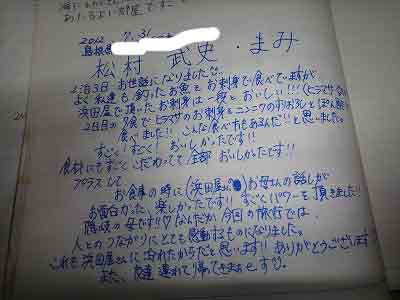 海に
あたるよい部屋です
2012 7.31
島根県
松村 武史・まみ
2泊3日 お世話になりました!!
よく私達も釣ったお魚をお刺身で食べていますが
浜田屋で頂いたお刺身は一段とおいしい!!!(ヒラマサ
2日目の夕食でヒラマサのお刺身とニンニクのすりおろしとぽん酢で
食べました!! こんな食べ方もあるんだ!!と思いました。
すごくすごく!おいしかったです!!
食材にもすごくこだわってて全部おいしかったです!!
プラスして
お食事の時に(浜田屋に)お母さんの話しが
お面白かった、楽しかったです!!すごくパワーを頂きました!!
隠岐の母です!!♡なんだか今回の旅行では、
人とのつながりにとても感動するものになりました。
これも浜田屋さんに泊れたからだと思います!!ありがとうございます
また、友達連れて帰ってきまぁーす